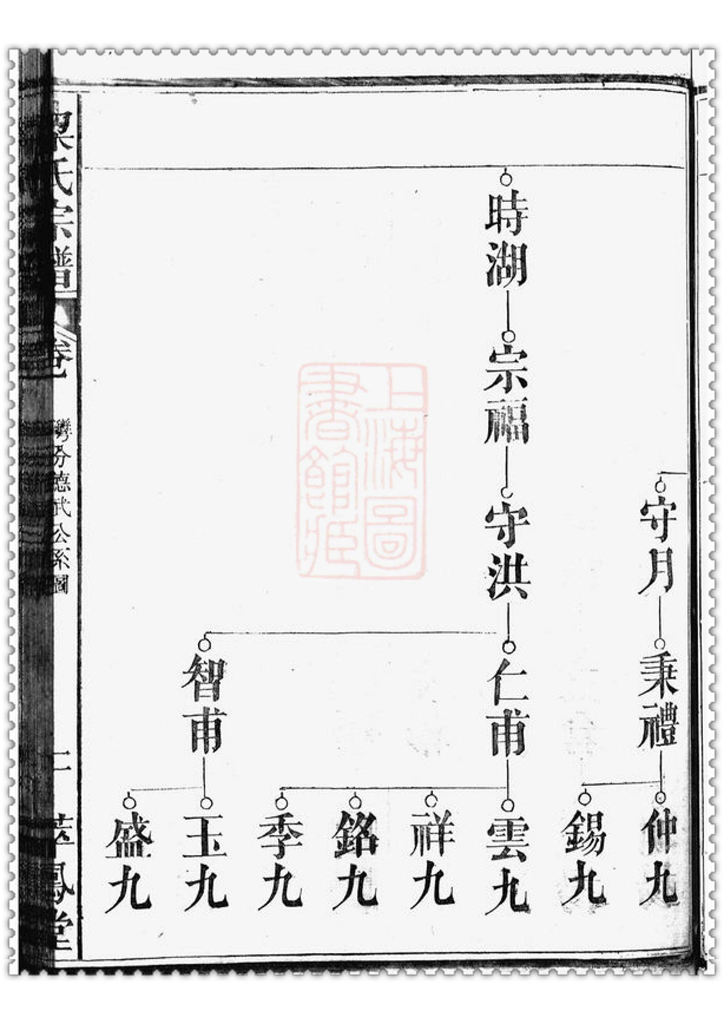 守月
秉禮
仲九
錫九
時湖
宗福
守洪
仁甫
雲九
祥九
銘九
季九
智甫
玉九
盛九
氏宗譜
卷
分德武公系圖
二
萃鳳堂
上海圖
書館